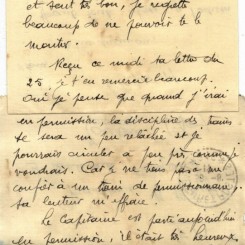 et sent très bon, je regrette
beaucoup de ne pouvoir te le
montrer.
Reçu ce midi ta lettre du
25 je t'en remercie beaucoup.
Oui je pense que quand j'irai
en permission, la discipline des trains
se sera un peu relâchée et je
pourrais circuler à peu près comme je
voudrais. Car je ne veux pas me
confier à un train de permissionnaires,
sa lenteur m'effraie.
Le Capitaine est parti aujourd'hui
en permission, il était très heureux